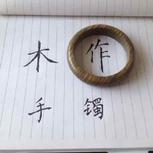 木作
手镯